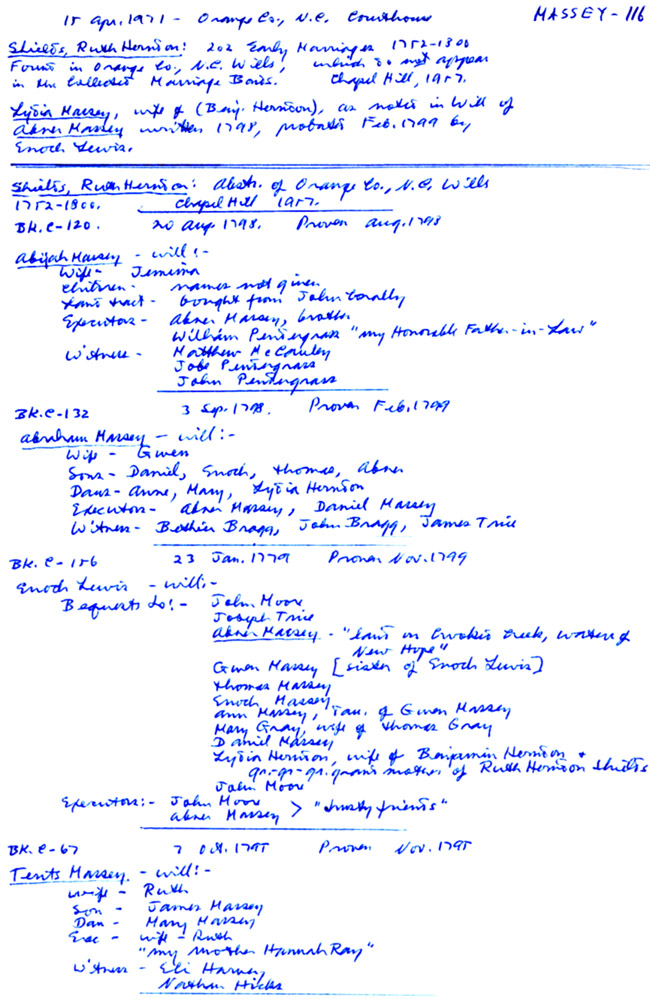 15 Apr. 1971 - Orange Co., N.C. Courthouse
MASSEY - 116
Shields, Ruth Herndon: 202 Early Marriages 1752-1800
Found in Orange Co., N.C. Wills, which do not appear
in the Collected Marriage Bonds. Chapel Hill, 1957.
Lydia Massey, wife of (Benj. Herndon), as noted in Will of
Abner Massey written 1798, probated Feb. 1799 by
Enoch Lewis.
Shields, Ruth Herndon: Abstr. of Orange Co., N.C. Wills
1752-1800. Chapel Hill 1957.
BK. C-120. 20 Aug 1798. Proven Aug. 1798
Abijah Massey - will :-
Wife - Jemima
Children - names not given
Land tract - bought from John
Executors - Abner Massey, brother
William Pendergrass "my Honorable Father-in-Law"
Witness - Matthew McCauley
Jobe Pendergrass
John Pendergrass
BK. C-132 3 Sep. 1798. Proven Feb. 1799
Abraham Massey - will :-
Wife - Gwen
Sons - Daniel, Enoch, Thomas, Abner
Daus - Anne, Mary, Lydia Herndon
Executors - Abner Massey, Daniel Massey
Witness - Bragg, John Bragg, James Trice
BK. C-156 23 Jan. 1779 Proven Nov. 1799
Enoch Lewis - will :-
Bequests to :- John Moore
Joseph Trice
Abner Massey - "land on Crooked Creek, waters of
New Hope"
Gwen Massey [sister of Enoch Lewis]
Thomas Massey
Enoch Massey
Ann Massey, dau. of Gwen Massey
Mary Gray, wife of Thomas Gray
Daniel Massey
Lydia Herndon, wife of Benjamin Herndon +
gr-gr-gr. grandmother of Ruth Herndon Shields
John Moore
Executors :- John Moore
Abner Massey > "trusty friends"
BK. C-67 7 Oct. 1795 Proven Nov. 1795
Massey - will :-
Wife - Ruth
Son - James Massey
Dau - Mary Massey
Exec - wife - Ruth
"my mother Hannah Ray"
Witness - Eli Harvey
Northan Hicks